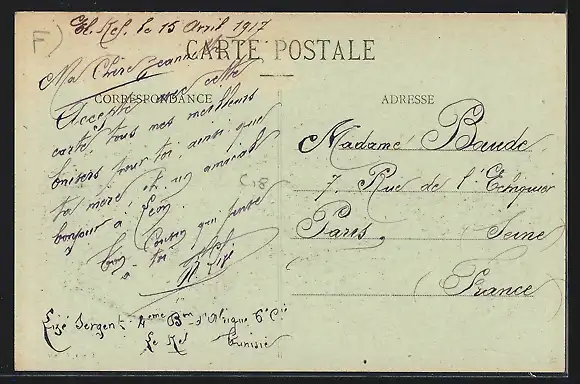 El Kef, le 15 Avril 1917
CARTE POSTALE
Ma Chère Jeanne
CORRESPONDANCE
Accepte avec cette
carte, tous mes meilleurs
baisers pour toi, ainsi que
ta mère, et un amical
bonjour à Léon.
Ton Cousin qui pense
à toi
ADRESSE
Madame Baude
7, Rue de l'Echiquier
Paris, Seine
France
C18
F)
Sergent 4eme Bon d'Afrique 6e Cie
Le Kef Tunisie